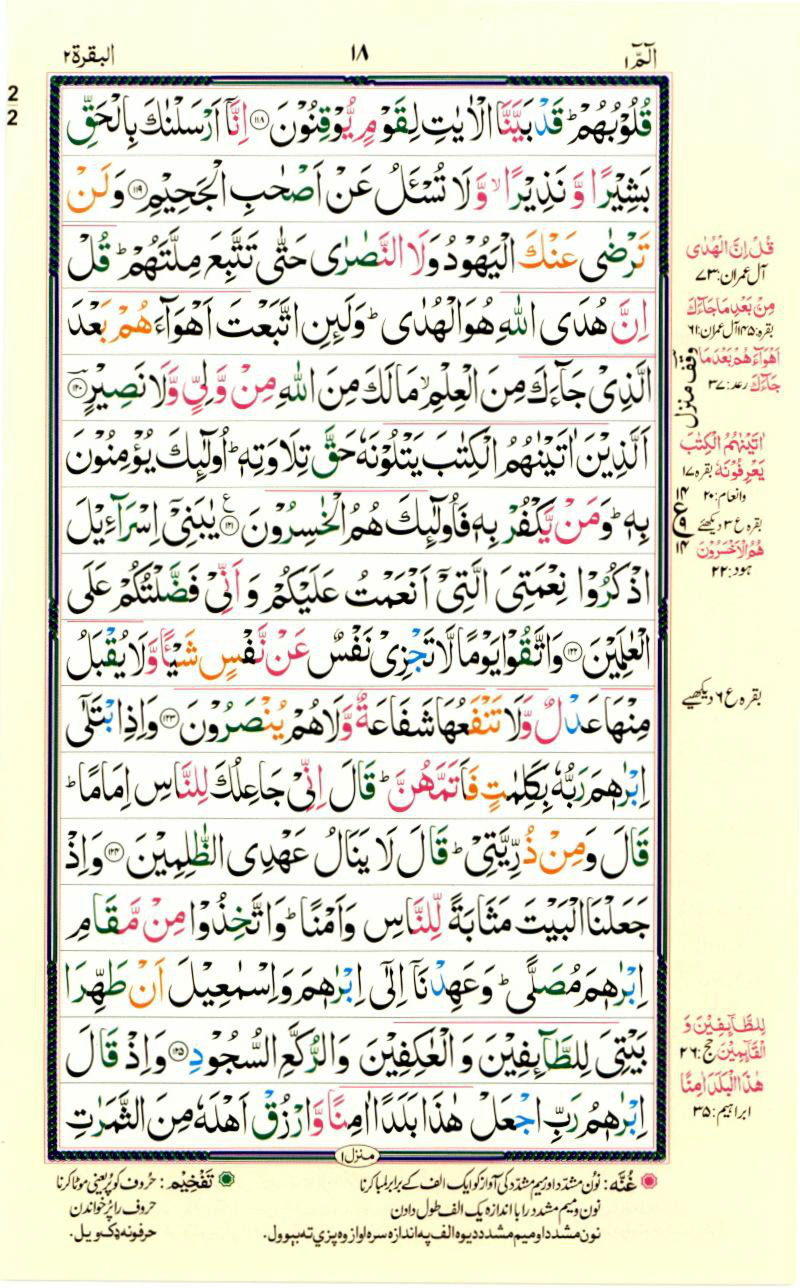 الٓمّٓ ١
١٨
البقرة ٢
2
2
قُلُوۡبُهُمۡ ؕ قَدۡ بَيَّنَّا الۡاٰيٰتِ لِقَوۡمٍ يُّوۡقِنُوۡنَ ﴿۱۱۸﴾ اِنَّاۤ اَرۡسَلۡنٰكَ بِالۡحَقِّ
بَشِيۡرًا وَّ نَذِيۡرًا ۙ وَّ لَا تُسۡـَٔلُ عَنۡ اَصۡحٰبِ الۡجَحِيۡمِ ﴿۱۱۹﴾ وَلَنۡ
تَرۡضٰى عَنۡكَ الۡيَهُوۡدُ وَلَا النَّصٰرٰى حَتّٰى تَتَّبِعَ مِلَّتَهُمۡ ؕ قُلۡ
اِنَّ هُدَى اللّٰهِ هُوَ الۡهُدٰى ؕ وَلَئِنِ اتَّبَعۡتَ اَهۡوَآءَهُمۡ بَعۡدَ
الَّذِىۡ جَآءَكَ مِنَ الۡعِلۡمِ ۙ مَا لَكَ مِنَ اللّٰهِ مِنۡ وَّلِىٍّ وَّلَا نَصِيۡرٍ ﴿۱۲۰﴾
اَلَّذِيۡنَ اٰتَيۡنٰهُمُ الۡكِتٰبَ يَتۡلُوۡنَهٗ حَقَّ تِلَاوَتِهٖ ؕ اُولٰٓئِكَ يُؤۡمِنُوۡنَ
بِهٖ ؕ وَمَنۡ يَّكۡفُرۡ بِهٖ فَاُولٰٓئِكَ هُمُ الۡخٰسِرُوۡنَ ﴿۱۲۱﴾ ع يٰبَنِىۡۤ اِسۡرَآءِيۡلَ
اذۡكُرُوۡا نِعۡمَتِىَ الَّتِىۡۤ اَنۡعَمۡتُ عَلَيۡكُمۡ وَ اَنِّىۡ فَضَّلۡتُكُمۡ عَلَى
الۡعٰلَمِيۡنَ ﴿۱۲۲﴾ وَاتَّقُوۡا يَوۡمًا لَّا تَجۡزِىۡ نَفۡسٌ عَنۡ نَّفۡسٍ شَيۡـًٔا وَّلَا يُقۡبَلُ
مِنۡهَا عَدۡلٌ وَّلَا تَنۡفَعُهَا شَفَاعَةٌ وَّلَا هُمۡ يُنۡصَرُوۡنَ ﴿۱۲۳﴾ وَاِذِ ابۡتَلٰٓى
اِبۡرٰهٖمَ رَبُّهٗ بِكَلِمٰتٍ فَاَتَمَّهُنَّ ؕ قَالَ اِنِّىۡ جَاعِلُكَ لِلنَّاسِ اِمَامًا ؕ
قَالَ وَمِنۡ ذُرِّيَّتِىۡ ؕ قَالَ لَا يَنَالُ عَهۡدِى الظّٰلِمِيۡنَ ﴿۱۲۴﴾ وَاِذۡ
جَعَلۡنَا الۡبَيۡتَ مَثَابَةً لِّلنَّاسِ وَاَمۡنًا ؕ وَاتَّخِذُوۡا مِنۡ مَّقَامِ
اِبۡرٰهٖمَ مُصَلًّى ؕ وَعَهِدۡنَاۤ اِلٰٓى اِبۡرٰهٖمَ وَاِسۡمٰعِيۡلَ اَنۡ طَهِّرَا
بَيۡتِىَ لِلطَّآئِفِيۡنَ وَالۡعٰكِفِيۡنَ وَالرُّكَّعِ السُّجُوۡدِ ﴿۱۲۵﴾ وَاِذۡ قَالَ
اِبۡرٰهٖمُ رَبِّ اجۡعَلۡ هٰذَا بَلَدًا اٰمِنًا وَّارۡزُقۡ اَهۡلَهٗ مِنَ الثَّمَرٰتِ
منزل ١
قُلۡ اِنَّ الۡهُدٰى
آل عمران: ۷۳
مِنۡۢ بَعۡدِ مَا جَآءَكَ
بقرہ: ۱۴۵ آل عمران: ۶۱
اَهۡوَآءَهُمۡ بَعۡدَ مَا
جَآءَكَ رعد: ۳۷
وقف منزل
اٰتَيۡنٰهُمُ الۡكِتٰبَ
يَعۡرِفُوۡنَهٗ بقرہ ۱۷
وانعام: ۲۰
بقرہ ع ۳ دیکھئے
۱۴
ع ۹
۱۴
هُمُ الۡاَخۡسَرُوۡنَ
ہود: ۲۲
بقرہ ع ۶ دیکھیے
لِلطَّآئِفِيۡنَ وَ
الۡقَآئِمِيۡنَ حج: ۲۶
هٰذَا الۡبَلَدَ اٰمِنًا
ابراہیم: ۳۵
غُنَّه: نون مشدد اور میم مشدد کی آواز کو ایک الف کے برابر لمبا کرنا
نون و میم مشدد را با اندازہ یک الف طول دادن
نون مشدد او میم مشدد د یوه الف په اندازه سره اواز وه پزې ته بیوول.
تَفْخِيْم: حروف کو پُر یعنی موٹا کرنا
حروف را پُر خواندن
حرفونه ډک ویل.